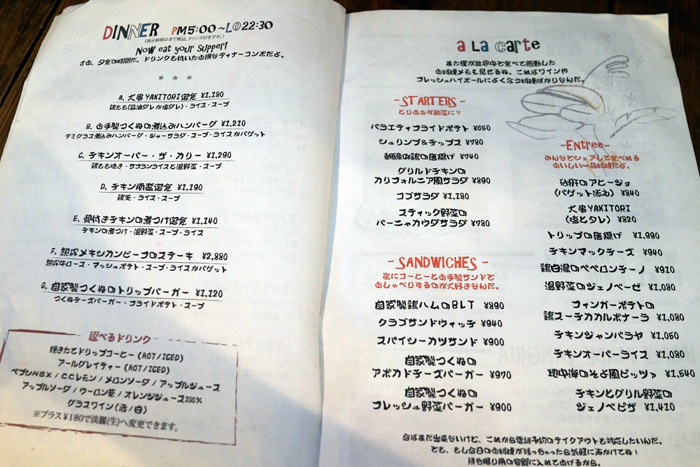 DINNER PM5:00~LO22:30
Now eat your Supper!
さあ、夕食の時間だ。ドリンクも付いたお得なディナーコンボだよ。
* * *
A. 大串YAKITORI定食 ¥1,180
鶏もも(醤油ダレか塩ダレ)・ライス・スープ
B. お手製つくねの煮込みハンバーグ ¥1,210
デミグラス煮込みハンバーグ・シャーサラダ・スープ・ライスかバゲット
C. チキンオーバー・ザ・カリー ¥1,290
鶏もも焼き・サフランライスと温野菜・スープ
D. チキン南蛮定食 ¥1,190
鶏天・ライス・スープ
E. 骨付きチキンの煮つけ定食 ¥1,140
チキンの煮つけ・温野菜・スープ・ライス
F. 熟成メキシカンビーフのステーキ ¥2,880
熟成牛ロース・マッシュポテト・スープ・ライスかバゲット
G. 自家製つくねのトリップバーガー ¥1,120
つくねチーズバーガー・フライドポテト・スープ
選べるドリンク
挽きたてドリップコーヒー (HOT/ICED)
アールグレイティー (HOT/ICED)
ペプシNEX / CCレモン / メロンソーダ / アップルジュース
アップルソーダ / ウーロン茶 / オレンジジュース100%
グラスワイン (赤/白)
※プラス¥180で淡麗(生)へ変更できます。
a La carte
また僕が世界中で食べて感動した
お料理メモを見せるね。これはワインや
フレッシュハイボールによく合う料理ばかりなんだ。
- STARTERS -
とりのおすすめ前菜に?
バラエティフライドポテト ¥660
シュリンプ&チップス ¥780
軟骨の唐揚げ ¥740
グリルドチキンの
カリフォルニア風サラダ ¥890
コブサラダ ¥1,180
スティック野菜の
バーニャカウダサラダ ¥780
- SANDWICHES -
夜にコーヒーとお手製サンドで
おしゃべりするのが大好きなんだ。
自家製鶏ハムのBLT ¥890
クラブサンドウィッチ ¥940
スパイシーカツサンド ¥900
自家製つくねの
アボカドチーズバーガー ¥970
自家製つくねの
フレッシュ野菜バーガー ¥900
- Entree -
みんなでシェアして食べれる
おいしい一品料理だよ。
砂肝のアヒージョ
(バゲット添え) ¥840
大串YAKITORI
(塩とタレ) ¥820
トリップの唐揚げ ¥990
チキンマックチーズ ¥940
鶏白湯のペペロンチーノ ¥910
温野菜のジェノベーゼ ¥1,080
フィンガーポテトの
鶏スーチカカルボナーラ ¥1,080
チキンジャンバラヤ ¥1,060
チキンオーバーライス ¥1,080
地中海のそよ風ピッツァ ¥1,640
チキンとグリル野菜の
ジェノベピザ ¥1,410
今はまだ出来ないけど、これから電話予約のテイクアウトも対応したいんだ。
でも、もし今日のお料理が残っちゃったら気軽に声かけてね!